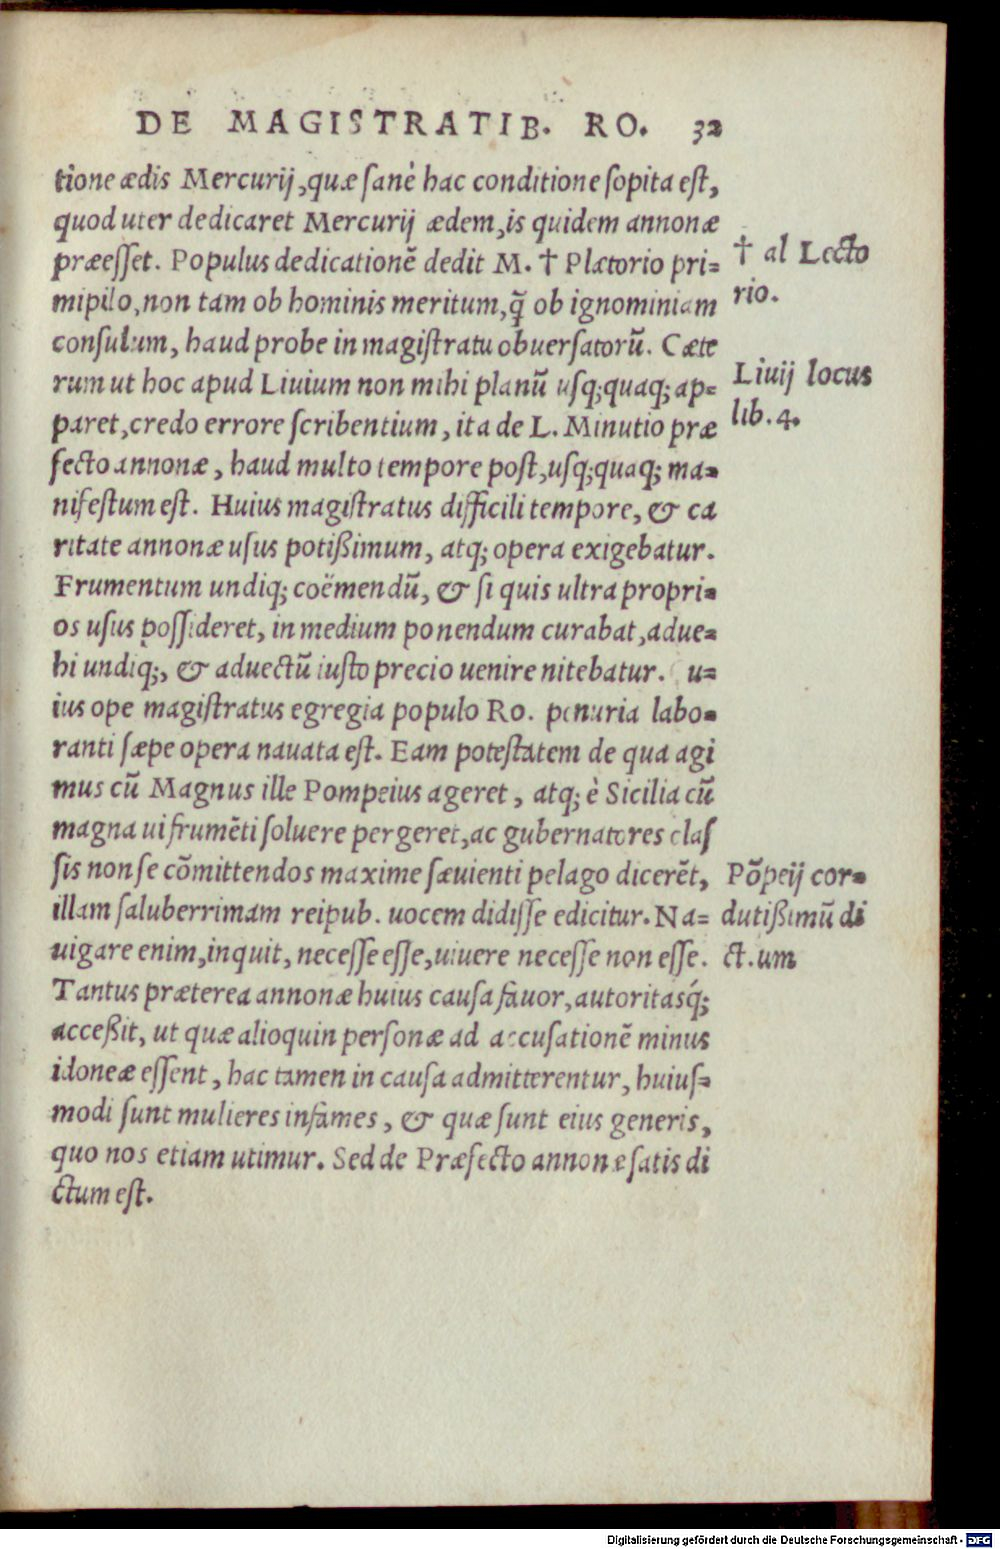 DE MAGISTRATIB. RO. 32
tione ædis Mercurij, quæ sanè hac conditione sopita est,
quod uter dedicaret Mercurij ædem, is quidem annonæ
præesset. Populus dedicationē dedit M. † Plætorio pri-
mipilo, non tam ob hominis meritum, q̃ ob ignominiam
consulum, haud probe in magistratu obuersatorū. Cæte
rum ut hoc apud Liuium non mihi planū usq; quaq; ap-
paret, credo errore scribentium, ita de L. Minutio præ
fecto annonæ, haud multo tempore post, usq; quaq; ma-
nifestum est. Huius magistratus difficili tempore, & ca
ritate annonæ usus potißimum, atq; opera exigebatur.
Frumentum undiq; coëmendū, & si quis ultra propri-
os usus possideret, in medium ponendum curabat, adue-
hi undiq;, & aduectū iusto precio uenire nitebatur. Cu-
ius ope magistratus egregia populo Ro. penuria labo-
ranti sæpe opera nauata est. Eam potestatem de qua agi
mus cū Magnus ille Pompeius ageret, atq; è Sicilia cū
magna ui frumēti soluere pergeret, ac gubernatores clas
sis non se cōmittendos maxime sæuienti pelago dicerēt,
illam saluberrimam reipub. uocem didisse edicitur. Na-
uigare enim, inquit, necesse esse, uiuere necesse non esse.
Tantus præterea annonæ huius causa fauor, autoritasq́;
acceßit, ut quæ alioquin personæ ad accusationē minus
idoneæ essent, hac tamen in causa admitterentur, huius-
modi sunt mulieres infames, & quæ sunt eius generis,
quo nos etiam utimur. Sed de Præfecto annonæ satis di
ctum est.
† al Lecto
rio.
Liuij locus
lib. 4.
Pōpeij cor-
dutißimū di
ct.um
Digitalisierung gefördert durch die Deutsche Forschungsgemeinschaft - DFG